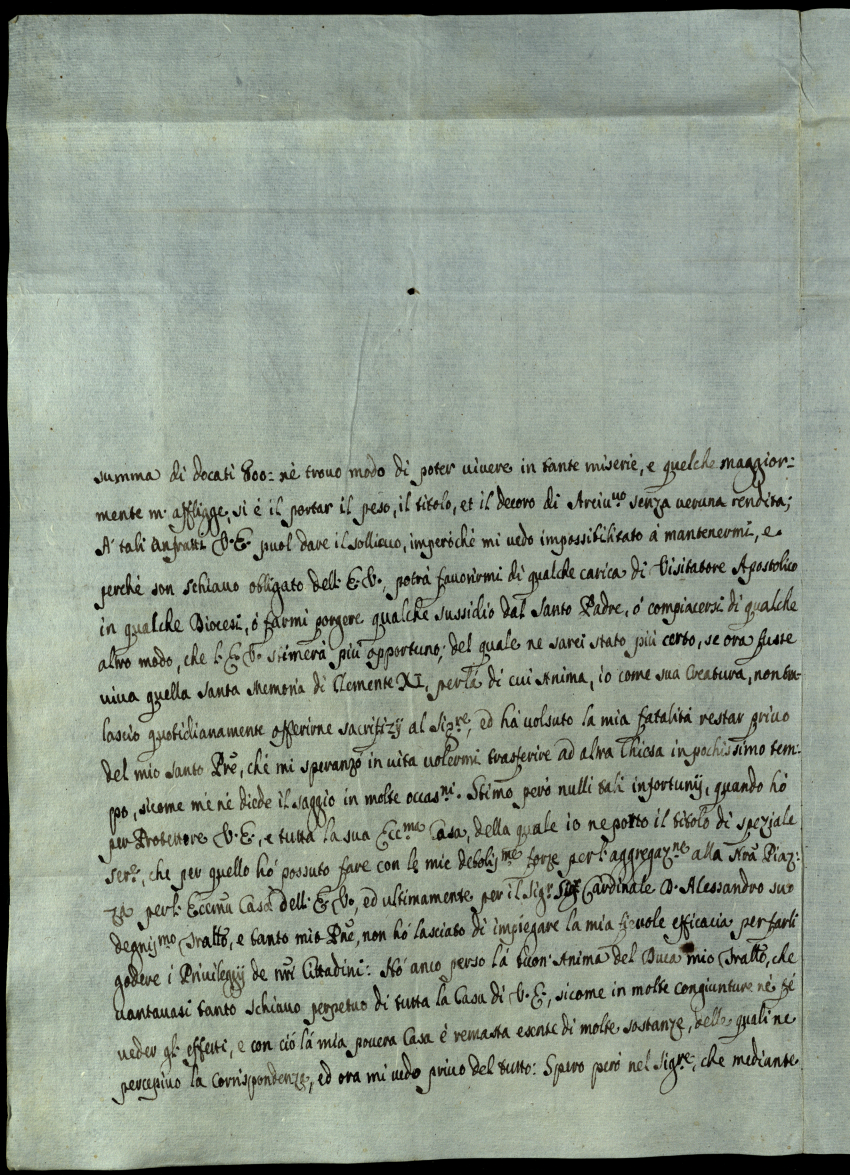 summa di docati 800= nè trovo modo di poter vivere in tante miserie, e quelche maggior=
mente m'affligge, si é il portar il peso, il titolo, et il decoro di Arciv.uo senza veruna rendita;
A' tali anfratti V.E. puol dare il sollievo, imperòché mi vedo impossibilitato á mantenermi, e
perché son schiavo obligato dell'E.V., potrá favorirmi di qualche carica di Visitatore Apostolico
in qualche Diocesi, ó farmi porgere qualche sussidio dal Santo Padre, ó compiacersi di qualche
altro modo, che l'E.V. stimerá piú opportuno; del quale ne sarei stato piú certo, se ora fusse
viva quella Santa Memoria di Clemente XI, per la di cui Anima, io come sua Creatura, non tra=
lascio quotidianamente offerirne sacrifizÿ al Sig.re, ed há volsuto la mia fatalitá restar privo
del mio Santo Prē, ché mi speranzó in vita volermi trasferire ad altra Chiesa in pochissimo tem=
po, sicome mé né diede il saggio in molte occas.ni. Stimo peró nulli tali infortunÿ, quando hó
per Protettore V.E., e tutta la sua Ecc.ma Casa, della quale io ne porto il titolo di speziale
Ser.e, che per quello hó possuto fare con le mie debolis.me forze per l'aggregaz.ne alla Nrā Piaz=
za per l'Eccm̄a Casa dell'E.V., ed ultimamente per il Sig.r Cardinale D. Alessandro suo
degnis.mo Fratt̄o, e tanto mio Prn̄e, non hó lasciato di impiegare la mia fievole efficacia per farli
godere i Privilegÿ de nrī Cittadini: Hó anco perso la buon'Anima del Duca mio Fratt̄o, che
vantavasi tanto schiavo perpetuo di tutta la Casa di V.E., sicome in molte congiunture né fé
veder gl'effetti, e con ció la mia povera Casa é remasta esente di molte sostanze, delle quali ne
percepivo la corrispondenza, ed ora mi vedo privo del tutto: Spero peró nel Sig.re, che mediante